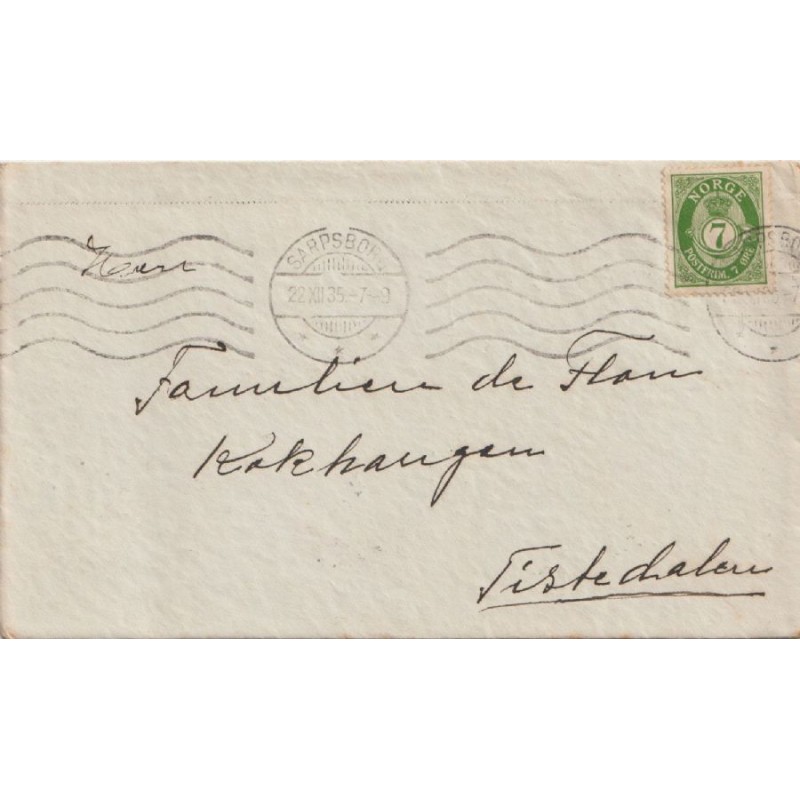 NORGE
7
POSTFRIM. 7 ØRE
SARPSBORG
22 XII 35.-7-9
Herr
Familien de Flon
Kokhaugen
Tistedalen